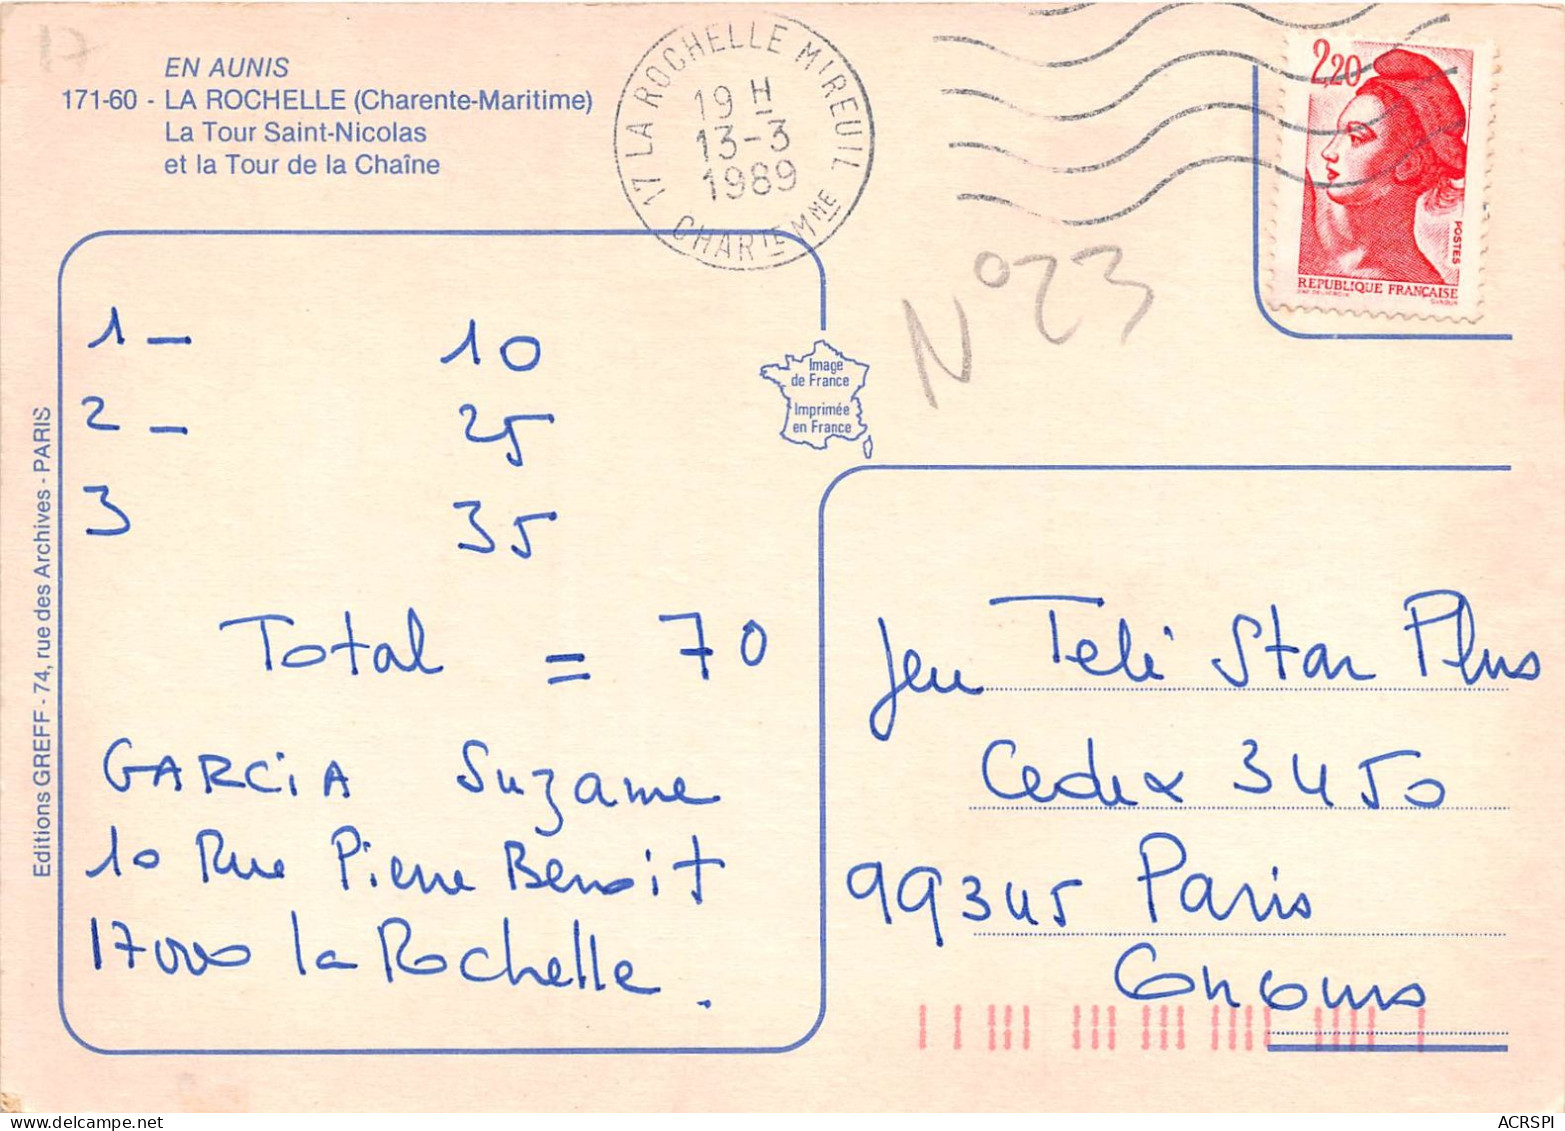 17
EN AUNIS
171-60 - LA ROCHELLE (Charente-Maritime)
La Tour Saint-Nicolas
et la Tour de la Chaîne
17 LA ROCHELLE MIREUIL
19 H
13-3
1989
CHARTE MME
2,20
POSTES
REPUBLIQUE FRANÇAISE
N° 23
1 - 10
2 - 25
3 35
Total = 70
GARCiA Suzanne
10 Rue Pierre Benoit
17000 la Rochelle.
Image
de France
Imprimée
en France
Jeu Télé Star Plus
Cedex 3450
99345 Paris
Concours
Editions GREFF - 74, rue des Archives - PARIS
ACRSPI